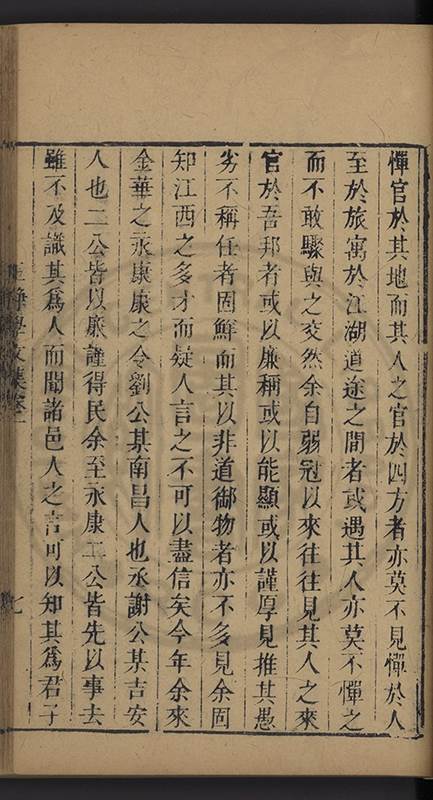 憚官於其地而其人之官於四方者亦莫不見憚於人
至於旅寓於江湖道途之間者或遇其人亦莫不憚之
而不敢驟與之交然余自弱冠以來往往見其人之來
官於吾邦者或以廉稱或以能顯或以謹厚見推其愚
劣不稱任者固鮮而其以非道御物者亦不多見余固
知江西之多才而疑人言之不可以盡信矣今年余來
金華之永康康之令劉公某南昌人也丞謝公某吉安
人也二公皆以廉謹得民余至永康二公皆先以事去
雖不及識其爲人而聞諸邑人之言可以知其爲君子
七